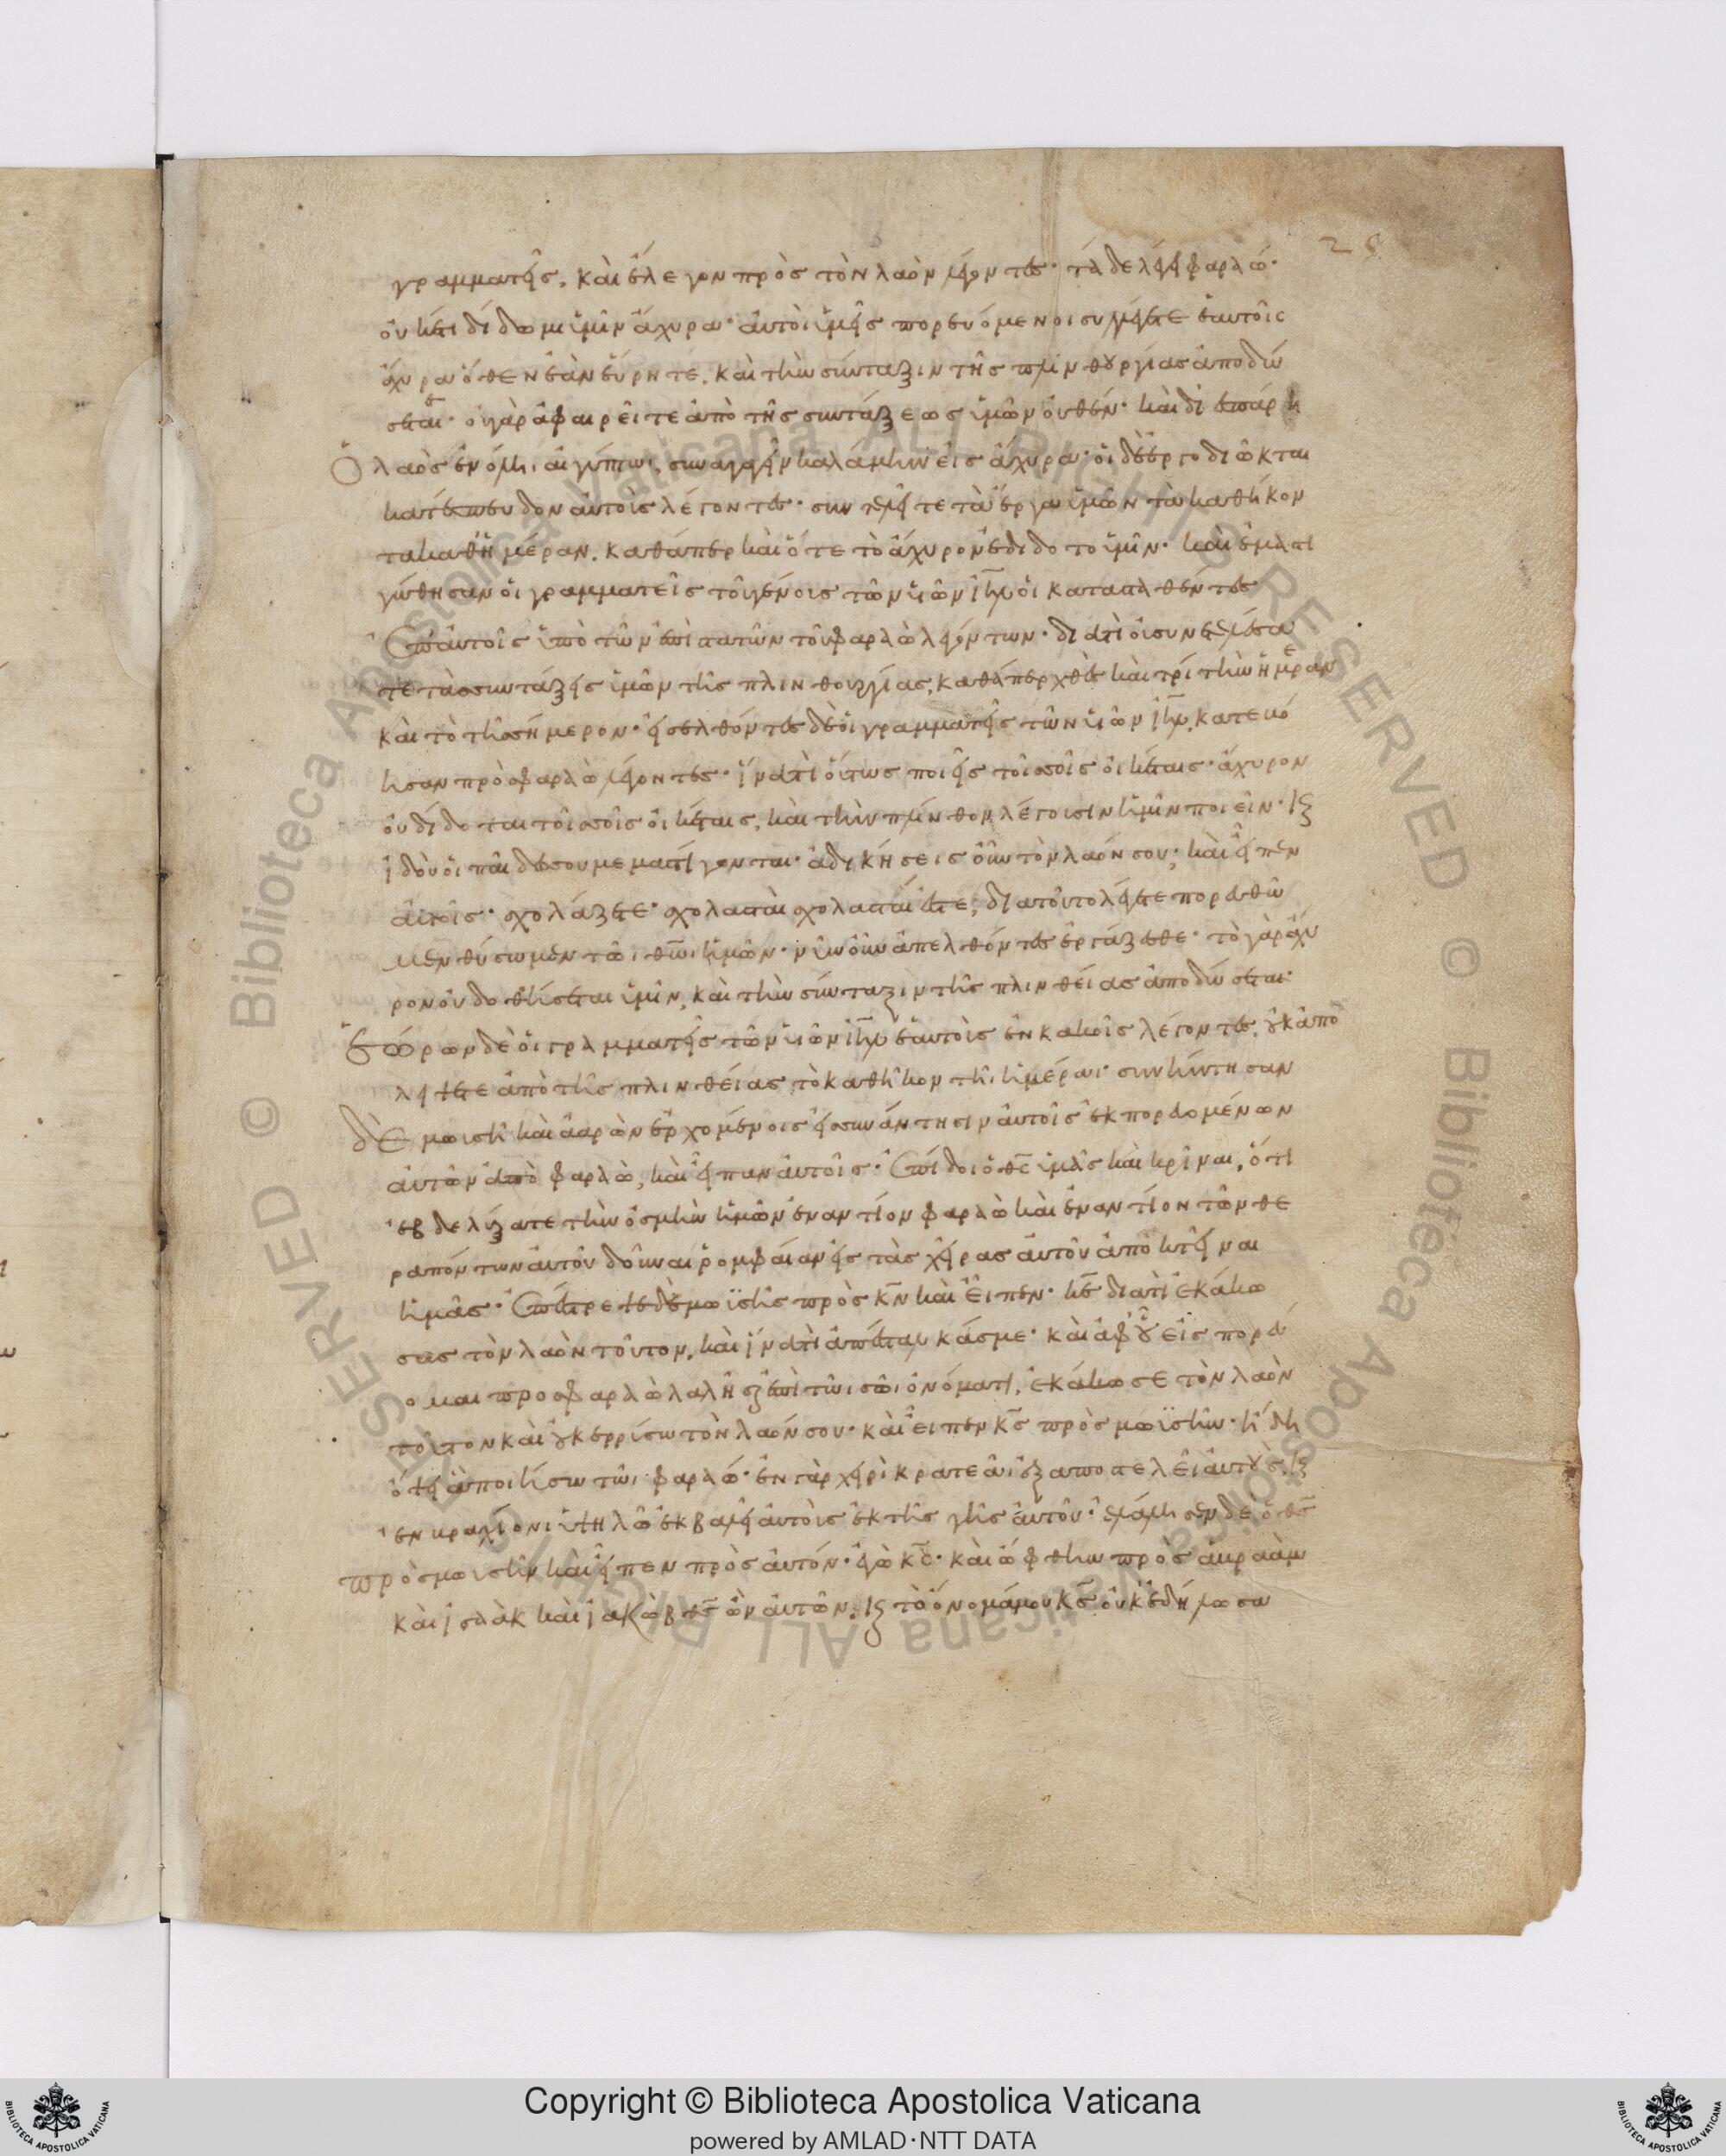 26
γραμματεῖς, καὶ ἔλεγον πρὸς τὸν λαὸν λέγοντες· τάδε λέγει φαραώ·
οὐκέτι δίδωμι ὑμῖν ἄχυρα· αὐτοὶ ὑμεῖς πορευόμενοι συλλέγετε ἑαυτοῖς
ἄχυρα ὅθεν ἐὰν εὕρητε, καὶ τὴν σύνταξιν τῆς πλινθουργίας ἀποδώ
σεται· οὐ γὰρ ἀφαιρεῖτε ἀπὸ τῆς συντάξεως ὑμῶν οὐθέν· καὶ διεσπάρη
ὁ λαὸς ἐν ὅλη αἰγύπτωι, συναγαγεῖν καλάμην εἰς ἄχυρα· οἱ δὲ ἐργοδιῶκται
κατέσπευδον αὐτοὺς λέγοντες· συντελεῖτε τὰ ἔργα ὑμῶν τὰ καθήκον
τα καθ' ἡμέραν, καθάπερ καὶ ὅτε τὸ ἄχυρον ἐδίδοτο ὑμῖν· καὶ ἐμαστι
γώθησαν οἱ γραμματεῖς τοῦ γένους τῶν υἱῶν ιηλ οἱ κατασταθέντες
ἐπ' αὐτοῖς ὑπὸ τῶν ἐπιστατῶν τοῦ φαραὼ λέγοντων· διατί οὐ συνετελέσα
τε τὰς συντάξεις ὑμῶν τῆς πλινθουργίας, καθάπερ χθὲς καὶ τρίτην ἡμέραν
καὶ τὸ τῆς σήμερον· εἰσελθόντες δὲ οἱ γραμματεῖς τῶν υἱῶν ιηλ, κατεβό
ησαν πρὸς φαραὼ λέγοντες· ἵνατί οὕτως ποιεῖς τοῖς σοῖς οἰκέταις· ἄχυρον
οὐ δίδοται τοῖς σοῖς οἰκέταις, καὶ τὴν πλίνθον λέγουσιν ἡμῖν ποιεῖν· καὶ
ἰδοὺ οἱ παῖδες σου μεμαστίγωνται· ἀδικήσεις οὖν τὸν λαόν σου; καὶ εἶπεν
αὐτοῖς· σχολάζετε· σχολασταί σχολασταί ἐστε; διὰ τοῦτο λέγετε πορευθῶ
μεν θύσωμεν τῶι θωι ἡμῶν· νῦν οὖν ἀπελθόντες ἐργάζεσθε· τὸ γὰρ ἄχυ
ρον οὐ δοθήσεται ὑμῖν, καὶ τὴν σύνταξιν τῆς πλινθείας ἀποδώσεται·
ἑώρων δὲ οἱ γραμματεῖς τῶν υἱῶν ιηλ ἑαυτοὺς ἐν κακοῖς λέγοντες, οὐκ ἀπο
λείψετε ἀπὸ τῆς πλινθείας τὸ καθῆκον τῆι ἡμέραι· συνήντησαν
δὲ μωυσῆ καὶ ἀαρὼν ἐρχομένοις εἰς συνάντησιν αὐτοῖς ἐκπορευομένων
αὐτῶν ἀπὸ φαραώ, καὶ εἶπαν αὐτοῖς· ἐπίδοι ὁ θς ὑμᾶς καὶ κρίναι, ὅτι
ἐβδελύξατε τὴν ὀσμὴν ἡμῶν ἐναντίον φαραὼ καὶ ἐναντίον τῶν θε
ραπόντων αὐτοῦ δοῦναι ῥομφαίαν εἰς τὰς χεῖρας αὐτοῦ ἀποκτεῖναι
ἡμᾶς· ἐπέστρεψε δὲ μωϋσῆς πρὸς κν καὶ εἶπεν· κε διατί ἐκάκω
σας τὸν λαὸν τοῦτον, καὶ ἵνατί ἀπέσταλκάς με· καὶ ἀφ' οὗ εἰσπορεύ
ομαι πρὸς φαραὼ λαλῆσαι ἐπὶ τῶι σῶι ὀνόματι, ἐκάκωσε τὸν λαὸν
τοῦτον καὶ οὐκ ἐρρύσω τὸν λαόν σου· καὶ εἶπεν κς πρὸς μωϋσῆν· ἤδη
ὄψει ἃ ποιήσω τῶι φαραώ· ἐν γὰρ χειρὶ κραταιᾶι ἐξαποστελεῖ αὐτούς, καὶ
ἐν βραχίονι ὑψηλῶ ἐκβαλεῖ αὐτοὺς ἐκ τῆς γῆς αὐτοῦ· ἐλάλησεν δὲ ὁ θς
πρὸς μωυσῆν καὶ εἶπεν πρὸς αὐτόν· ἐγὼ κς· καὶ ὤφθην πρὸς ἀβραὰμ
καὶ ἰσαὰκ καὶ ἰακὼβ θς ὢν αὐτῶν, καὶ τὸ ὄνομά μου κς οὐκ ἐδήλωσα
Copyright © Biblioteca Apostolica Vaticana
powered by AMLAD·NTT DATA
© Biblioteca Apostolica Vaticana ALL RIGHTS RESERVED © Biblioteca Apostolica Vaticana ALL RIGHTS RESERVED
BIBLIOTECA APOSTOLICA VATICANA
BIBLIOTECA APOSTOLICA VATICANA